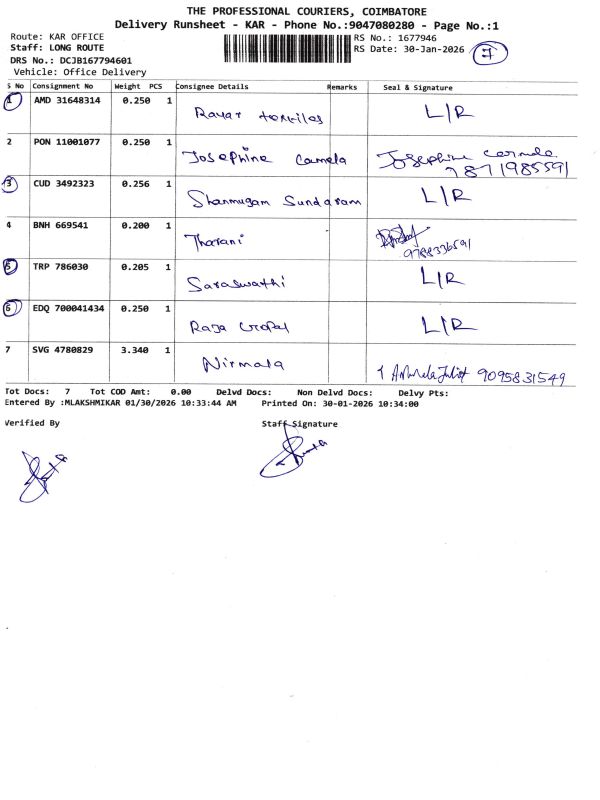 THE PROFESSIONAL COURIERS, COIMBATORE
Delivery Runsheet - KAR - Phone No.:9047080280 - Page No.:1
Route: KAR OFFICE RS No.: 1677946
Staff: LONG ROUTE RS Date: 30-Jan-2026 7
DRS No.: DCJB167794601
Vehicle: Office Delivery
S No Consignment No Weight PCS Consignee Details Remarks Seal & Signature
1 AMD 31648314 0.250 1 Rayar textiles L/R
2 PON 11001077 0.250 1 Josephine Camela Josephine carmela
7871985591
3 CUD 3492323 0.256 1 Shanmugam Sundaram L/R
4 BNH 669541 0.200 1 Tharani
9788336591
5 TRP 786030 0.205 1 Saraswathi L/R
6 EDQ 700041434 0.250 1 Raja Gopal L/R
7 SVG 4780829 3.340 1 Nirmala 9095831549
Tot Docs: 7 Tot COD Amt: 0.00 Delvd Docs: Non Delvd Docs: Delvy Pts:
Entered By :MLAKSHMIKAR 01/30/2026 10:33:44 AM Printed On: 30-01-2026 10:34:00
Verified By Staff Signature